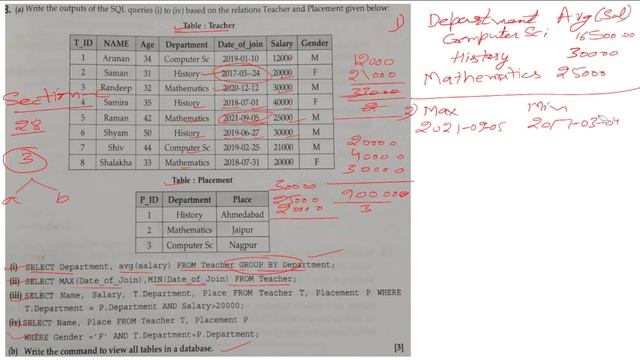 3. (a) Write the outputs of the SQL queries (i) to (iv) based on the relations Teacher and Placement given below:
Table : Teacher
T_ID NAME Age Department Date_of_join Salary Gender
1 Arunan 34 Computer Sc 2019-01-10 12000 M
2 Saman 31 History 2017-03-24 20000 F
3 Randeep 32 Mathematics 2020-12-12 30000 M
4 Samira 35 History 2018-07-01 40000 F
5 Raman 42 Mathematics 2021-09-05 25000 M
6 Shyam 50 History 2019-06-27 30000 M
7 Shiv 44 Computer Sc 2019-02-25 21000 M
8 Shalakha 33 Mathematics 2018-07-31 20000 F
Table : Placement
P_ID Department Place
1 History Ahmedabad
2 Mathematics Jaipur
3 Computer Sc Nagpur
(i) SELECT Department, avg(salary) FROM Teacher GROUP BY Department;
(ii) SELECT MAX(Date_of_Join),MIN(Date_of_Join) FROM Teacher;
(iii) SELECT Name, Salary, T.Department, Place FROM Teacher T, Placement P WHERE
T.Department = P.Department AND Salary>20000;
(iv) SELECT Name, Place FROM Teacher T, Placement P
WHERE Gender ='F' AND T.Department=P.Department;
(b) Write the command to view all tables in a database.
[3]
Section-
28
3
a b
12000
21000
33000
2
20000
40000
30000
3
30000
25000
20000
1)
Department Avg(Sal)
Computer Sci 16500.00
History 30000
Mathematics 25000
2) Max Min
2021-09-05 2017-03-04